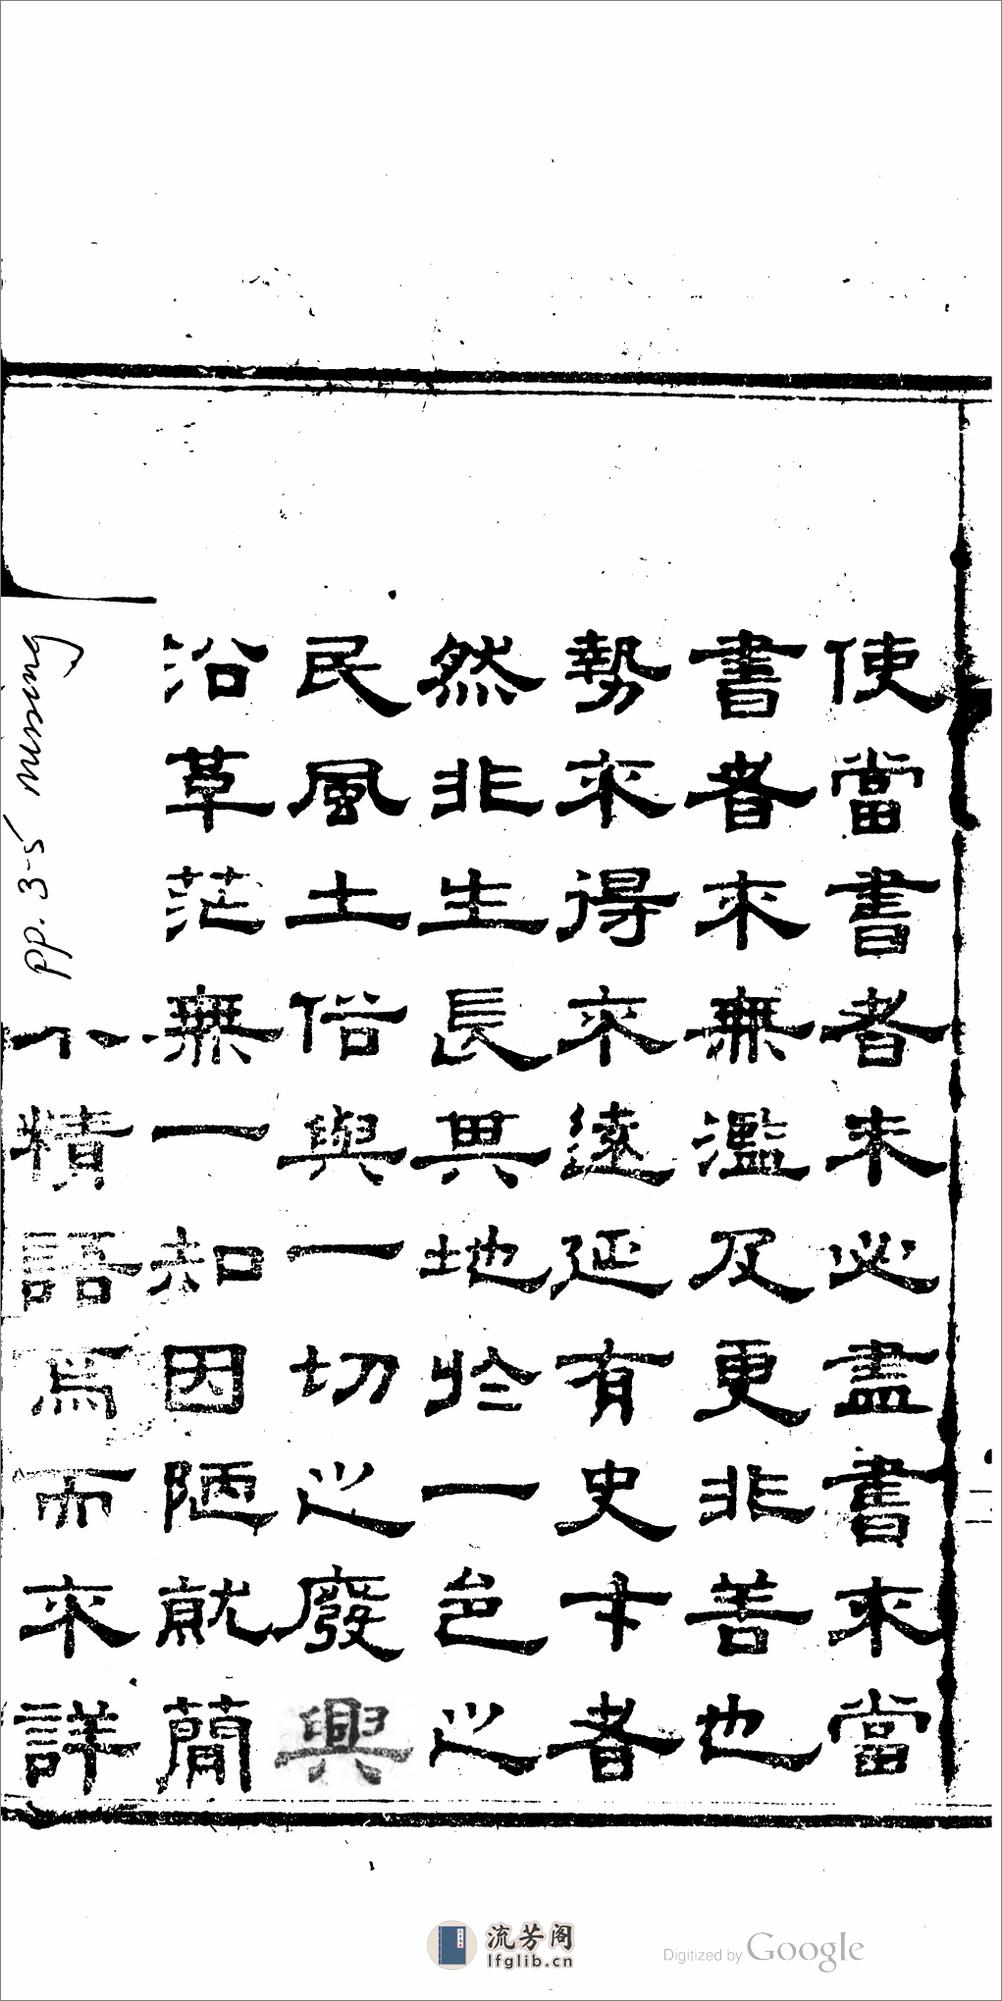 使當書者未必盡書不當
書者不無濫及更非善也
勢不得不遠延有史才者
然非生長其地於一邑之
民風土俗與一切之廢興
沿革茫無一知因陋就簡
不精語焉而不詳
pp. 3-5 missing
流芳阁
lfglib.cn
Digitized by Google